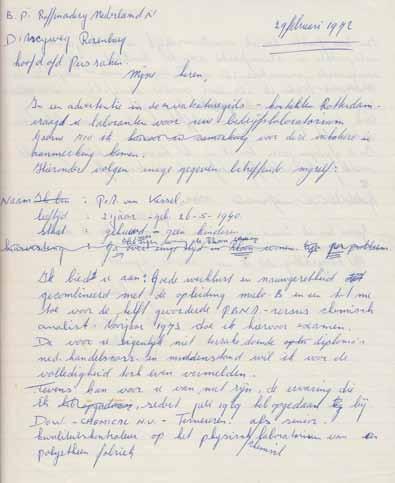 B.P. Raffinaderij Nederland N
29 februari 1972
D. Rozenburg
hoofd afd Pers. zaken.
Mijne heren,
In een advertentie in de vakaturegids - kontakten Rotterdam -
vraagt u laboranten voor uw bedrijfslaboratorium
Gaarne zou ik voor deze vakature in
aanmerking komen.
Hieronder volgen enige gegevens betreffende mijzelf:
Naam : P.A. van Kessel
leeftijd : 31 jaar - geb. 26-5-1940.
staat : gehuwd - geen kinderen
geen probleem.
Ik bied u aan: Goede werklust en nauwgezetheid
gecombineerd met de opleiding mulo-B en een tot nu
toe voor de helft gevorderde P.B.N.A.-cursus chemisch
analist. Voorjaar 1973 doe ik hiervoor examen.
De voor u eigenlijk niet terzake doende diploma's
ned. handelscorr. en middenstand wil ik voor de
volledigheid toch even vermelden.
Tevens kan voor u van nut zijn, de ervaring die
ik sedert juli 1969 heb opgedaan bij
Dow - Chemical N.V. - Terneuzen. als senior
kwaliteitskontroleur op het physisch laboratorium van een
chemisch
polyetheen fabriek